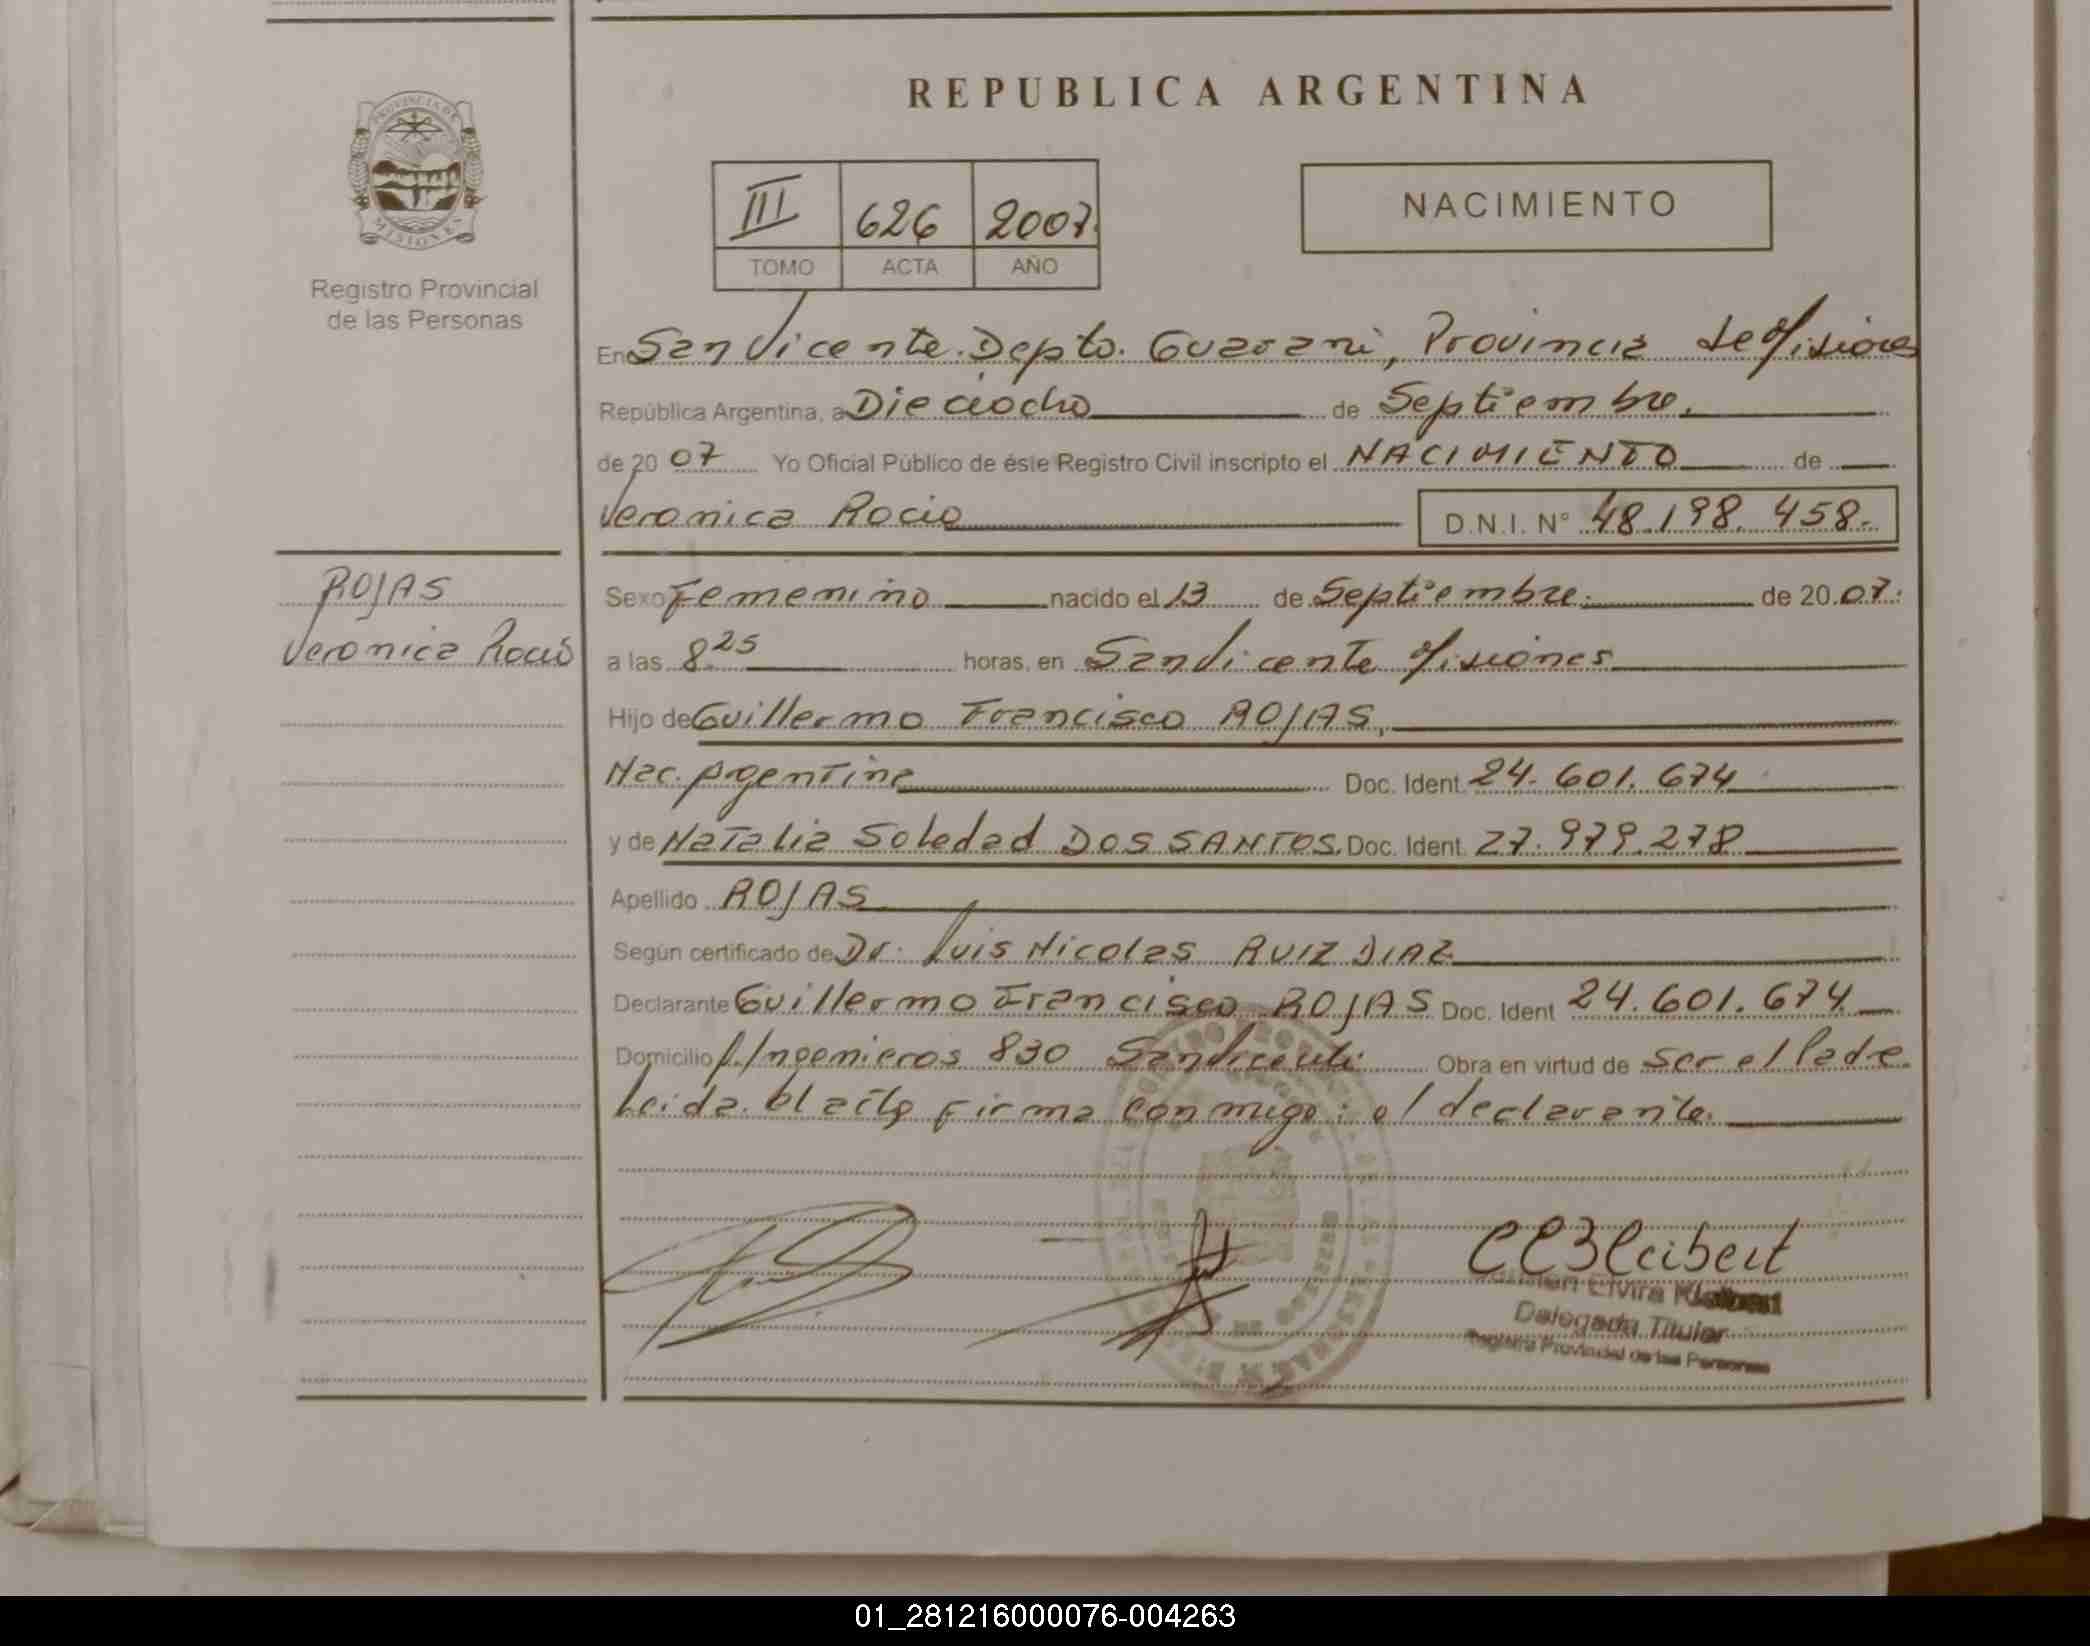 REPUBLICA ARGENTINA
PROVINCIA DE
MISIONES
Registro Provincial
de las Personas
III 626 2007.
TOMO ACTA AÑO
NACIMIENTO
En San Vicente. Depto. Guarani, Provincia de Misiones
República Argentina, a Dieciocho de Septiembre.
de 20 07 Yo Oficial Público de éste Registro Civil inscripto el NACIMIENTO de
Veronica Rocio D.N.I. N° 48.198.458.-
ROJAS
Veronica Rocio
Sexo Femenino nacido el 13 de Septiembre. de 20 07.
a las 8.25 horas, en San Vicente Misiones
Hijo de Guillermo Francisco ROJAS,
Nac. Argentina Doc. Ident. 24.601.674
y de Natalia Soledad DOS SANTOS. Doc. Ident. 27.979.278
Apellido ROJAS
Según certificado de Dr. Luis Nicolas RUIZ DIAZ
Declarante Guillermo Francisco ROJAS Doc. Ident 24.601.674.
Domicilio Ingenieros 830 San Vicente Obra en virtud de ser el Padre
Leida el acta firma conmigo: el declarante.
Elvira
Delegada Titular
Registro Provincial de las Personas
01_281216000076-004263